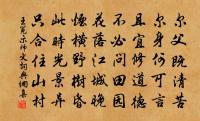 尔父既清苦
尔身何可言
且宜修道德
不必问田园
花落江城晚
烟横野樹昏
此時光景异
只合住山村
王冕示師文詞典網集